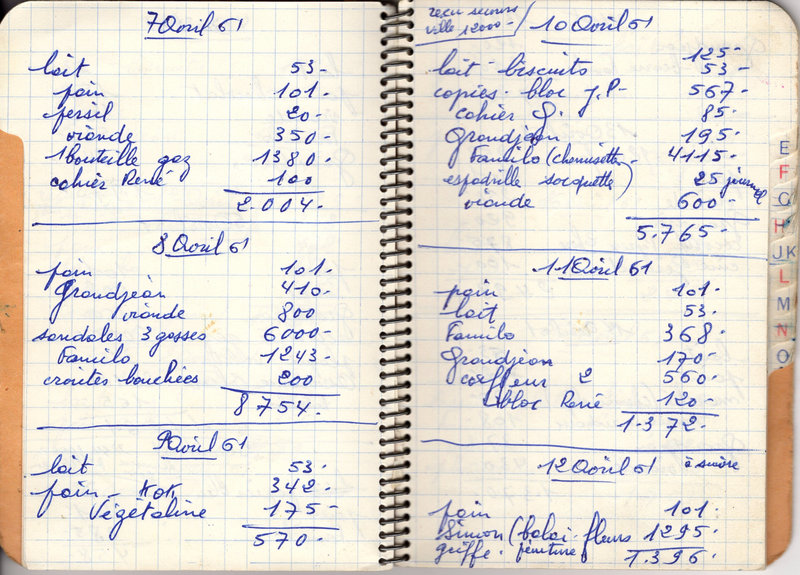 7 Avril 61
lait 53-
pain 101-
persil 20-
viande 350-
1 bouteille gaz 1380-
cahier René 100
2.004-
8 Avril 61
pain 101-
Grandjean 410-
viande 800
sandales 3 gosses 6000-
Familo 1243-
croutes bouchées 200
8754-
9 Avril 61
lait 53-
pain - 342-
Végétaline 175-
570-
reçu secours
ville 12000-
10 Avril 61
125-
lait - biscuits 53-
copies - bloc J.P- 567-
cahier G. 85-
Grandjean 195-
Familo (chemisette 4115-
espadrille socquette) 25 journal
viande 600-
5.765-
11 Avril 61
pain 101-
lait 53-
Familo 368-
Grandjean 170-
coiffeur 2 560-
1 bloc René 120-
1.372-
12 Avril 61 à suivre
pain 101-
Simon (balai-fleurs 1295-
griffe- peinture)
1.396-
E
F
G
H
JK
L
M
N
O